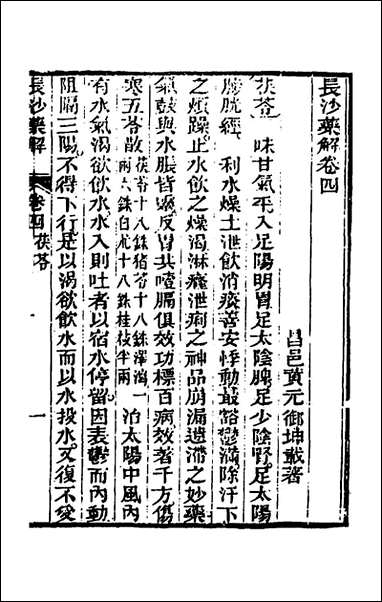 長沙藥解卷四
昌邑黃元御坤載著
茯苓　味甘氣平入足陽明胃足太陰脾足少陰腎足太陽
膀胱經　利水燥土泄飲消痰善安悸動最豁鬱滿除汗下
之煩躁止水飲之燥渴淋癃泄痢之神品崩漏遺滯之妙藥
氣鼓與水脹皆靈反胃共噎膈俱效功標百病效著千方傷
寒五苓散茯苓十八銖豬苓十八銖澤瀉一兩六銖白朮十八銖桂枝半兩治太陽中風內
有水氣渴欲飲水水入則吐者以宿水停留因表鬱而內動
阻隔三陽不得下行是以渴欲飲水而以水投水又復不受
長沙藥解　卷四茯苓　一